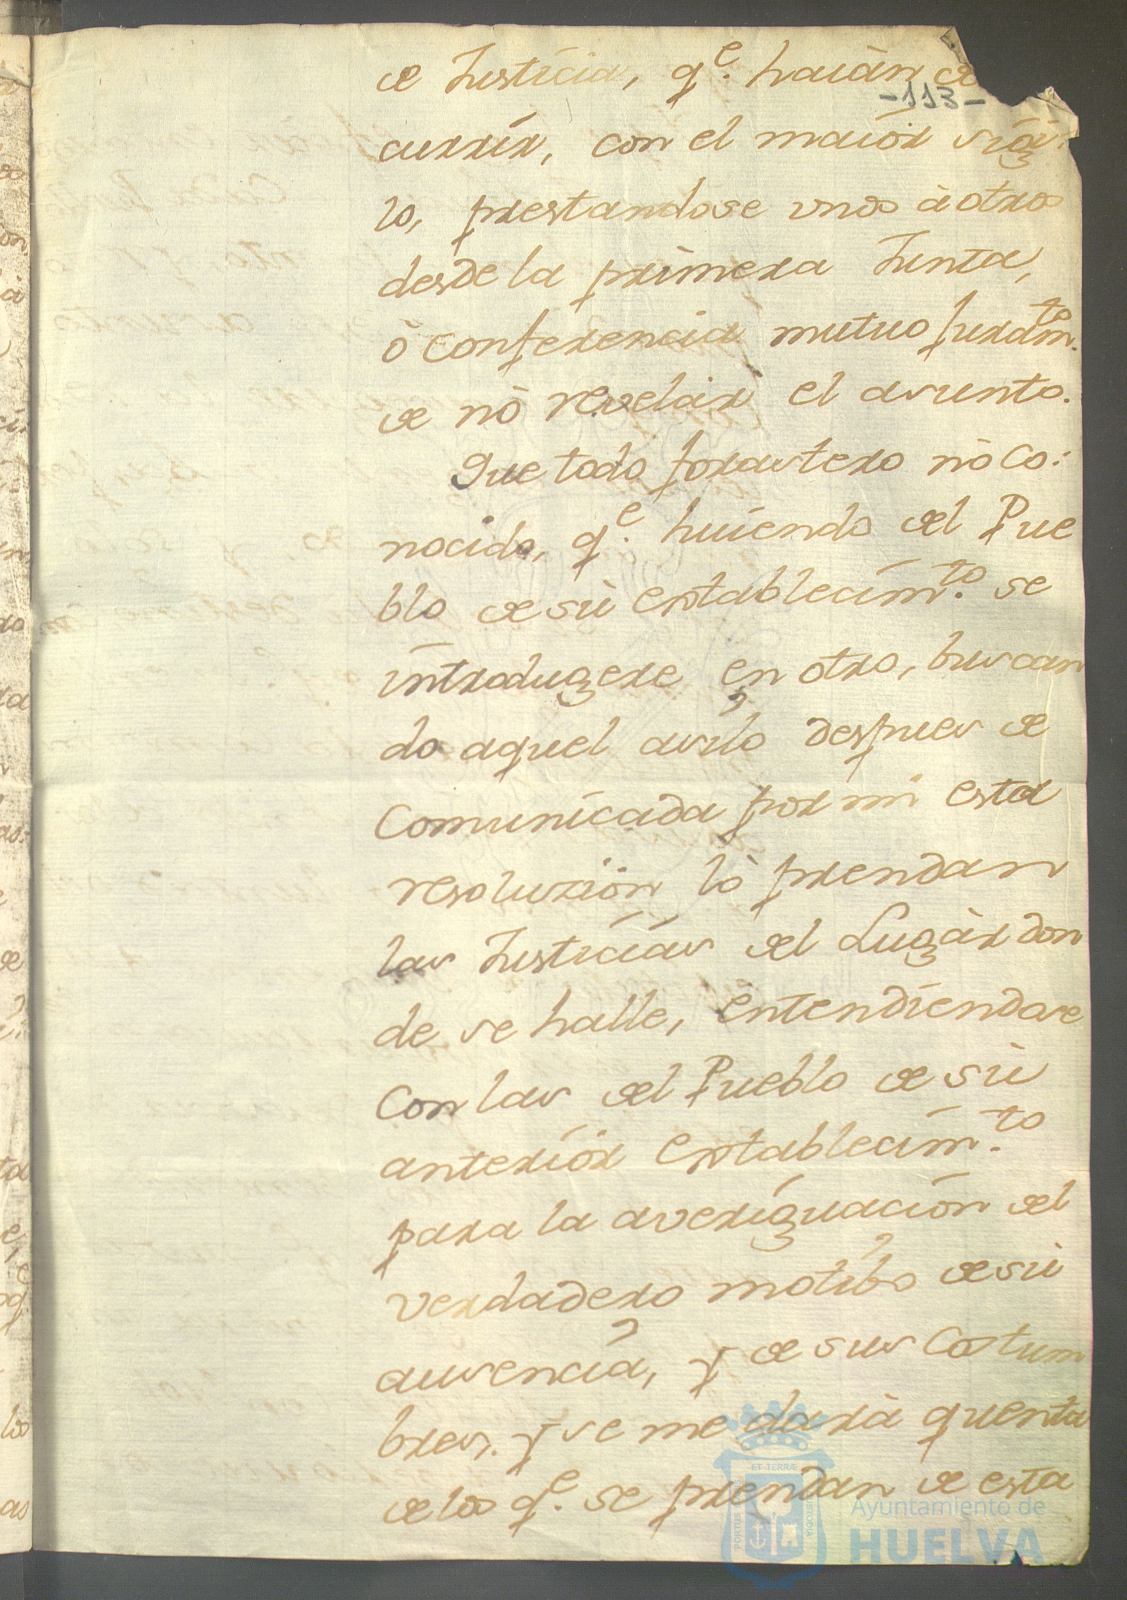 de Justicia, q.e haián de
-113-
currir, con el maiór sigi:
lo, prestandose unos à otros
desde la primera Junta,
ò Conferencia mutuo juram.to
de nò revelár el asunto.
Que todo forastero nò co:
nocido, q.e huiendo del Pue
blo de sù establecim.to se
introdugere en otro, buscan
do aquel asilo despues de
Comunicada por mi esta
resoluzión lò prendan
las Justicias del Lugàr don
de se halle, entendiendose
Con las del Pueblo de sù
anteriór establecim.to
para la averiguación del
verdadero motibo de sù
ausencia, y de sus Costum
bres. y se me darà quenta
de los q.e se prendan de esta
ET TERRÆ
PORTUS
CUSTODIA
Ayuntamiento de
HUELVA